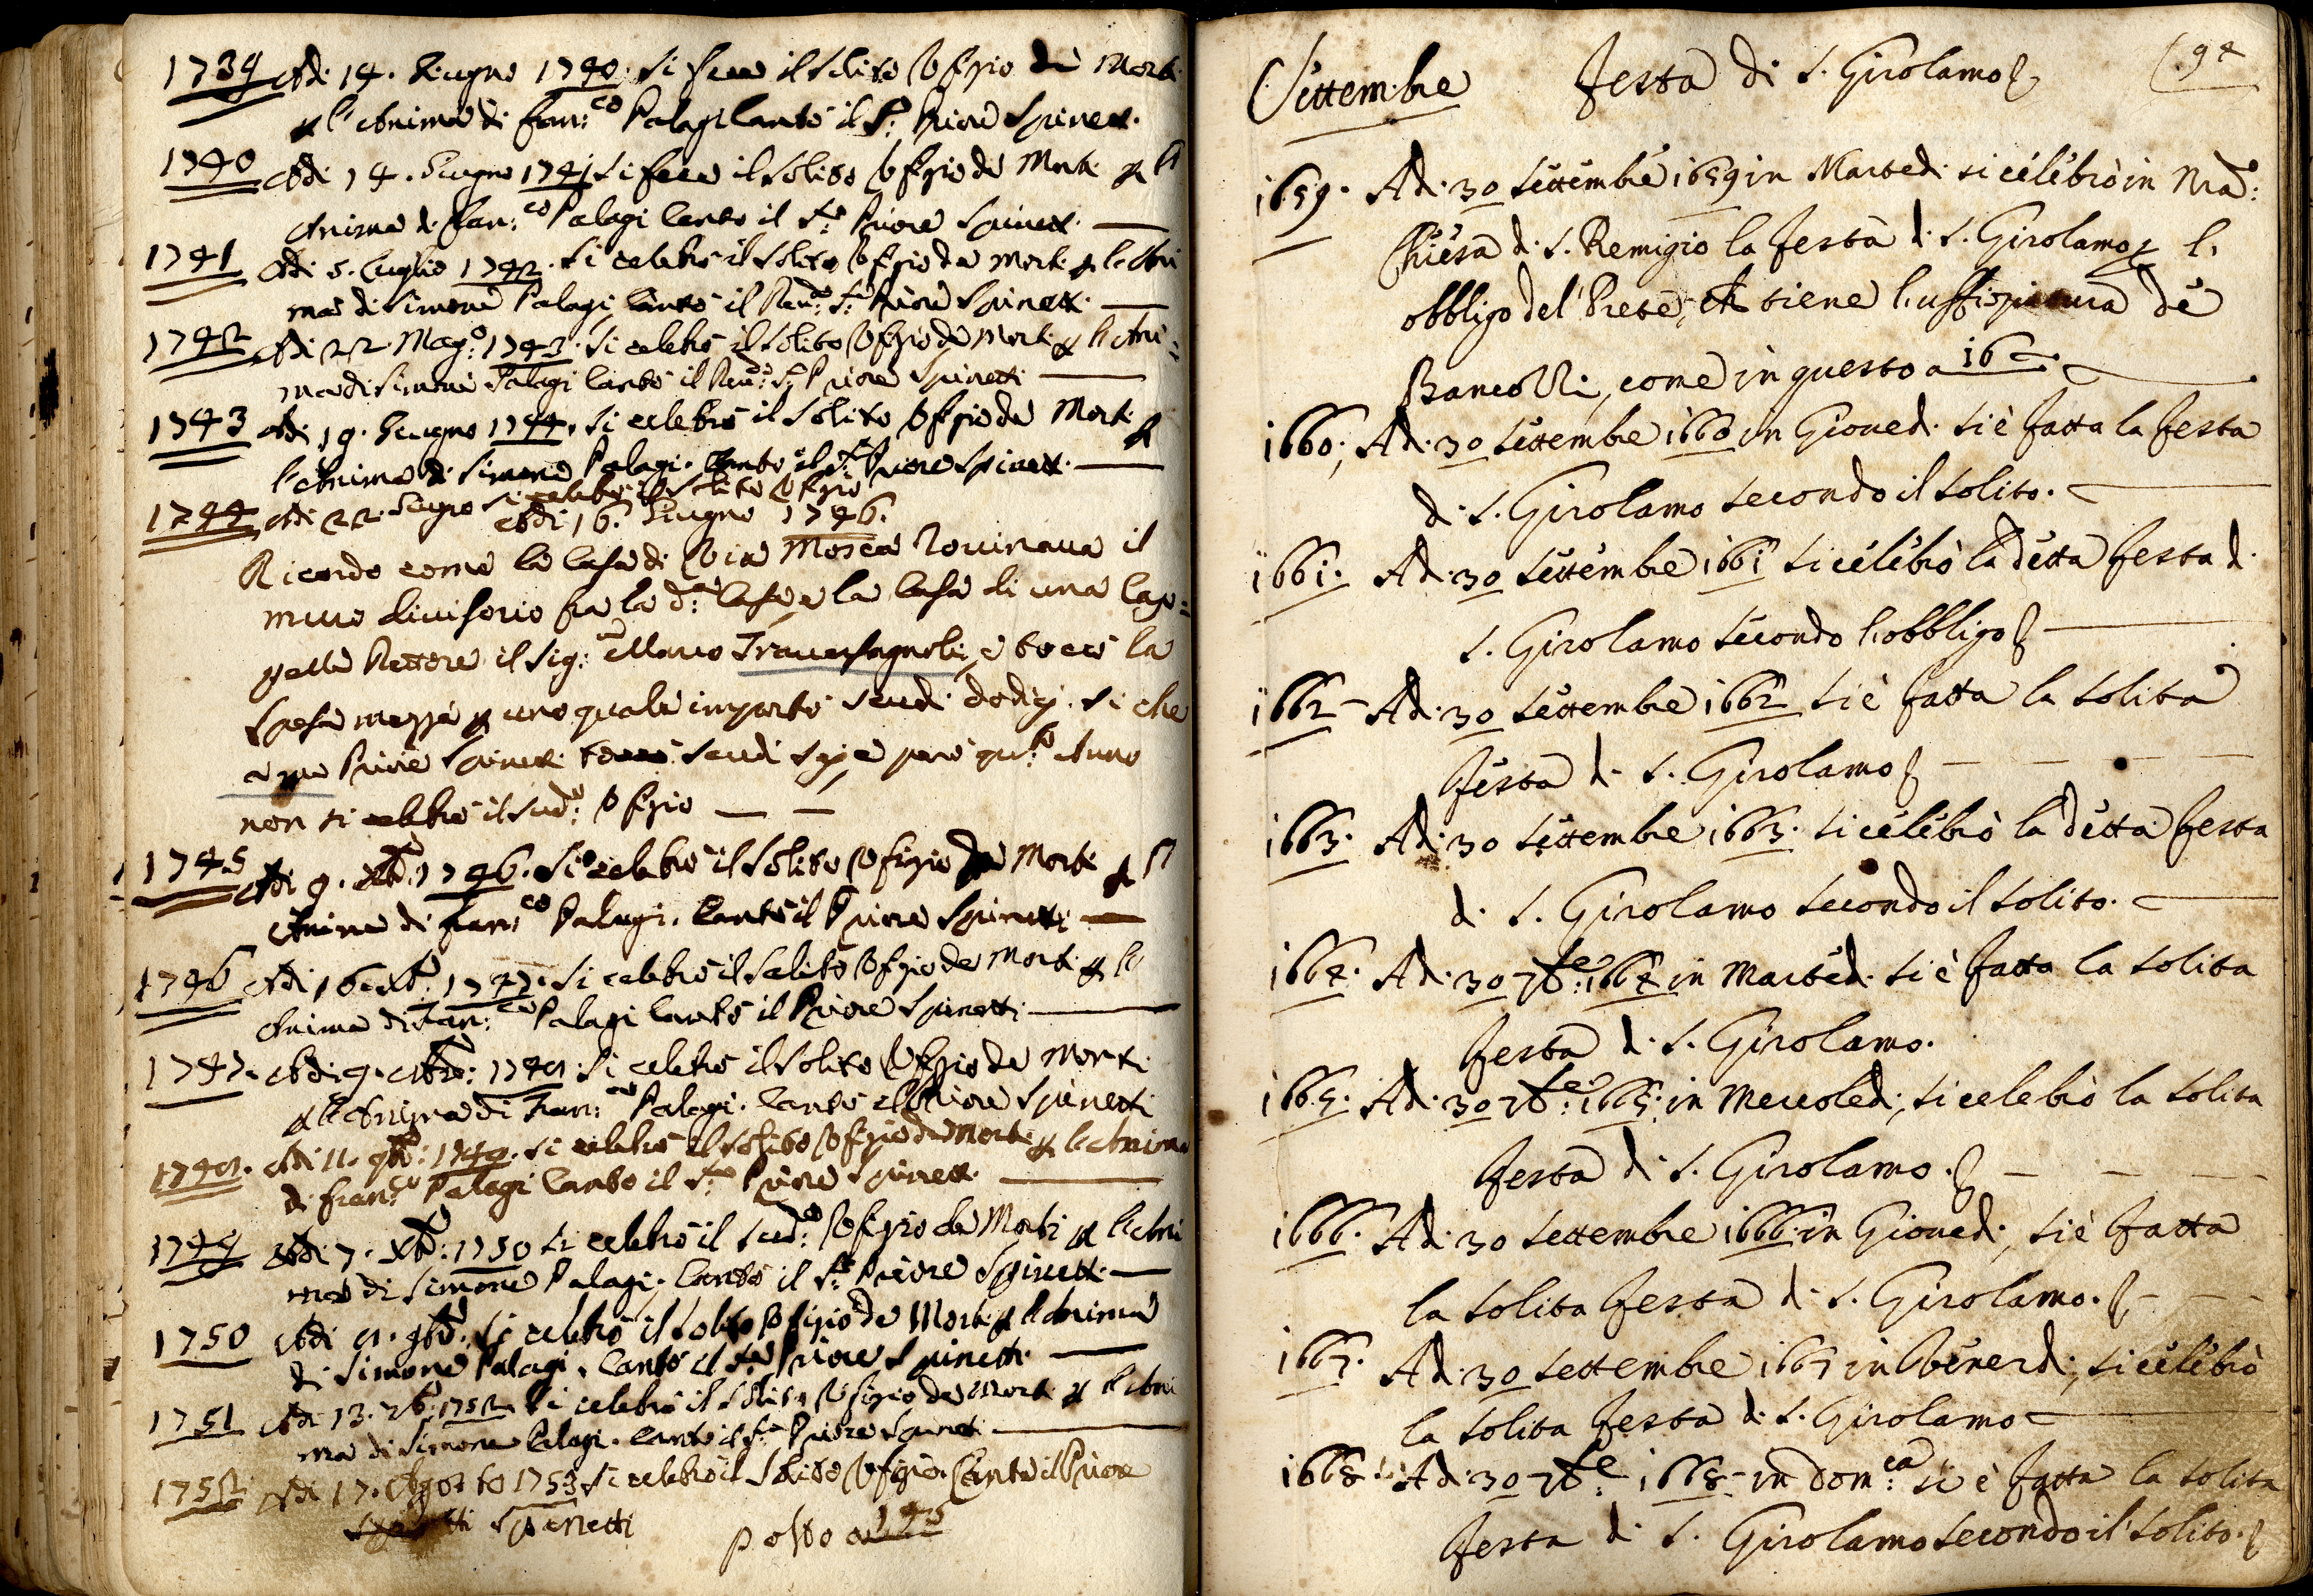 1739 Adi 14. Giugno 1740. si fece il solito Ofizio de Morti
p l'Anima di Fran:co Palagi Cantò il S:re Priore Spinetti.
1740 Adi 14. Giugno 1741 si fece il solito Ofizio de Morti p l'
Anima di Fran:co Palagi Cantò il S:re Priore Spinetti.
1741 Adi 5. Luglio 1742. si celebrò il solito Ofizio de Morti p l'Ani
ma di Simone Palagi Cantò il Reu:do S:re Priore Spinetti.
1742 Adi 22. Mag:o 1743. si celebrò il solito Ofizio de Morti p l'Ani=
ma di Simone Palagi Cantò il Reu:do S:re Priore Spinetti
1743 Adi 19. Giugno 1744. si celebrò il solito Ofizio de Morti p
l'Anima di Simone Palagi. Cantò il S:re Priore Spinetti.
1744 Adi 22. Giugno si celebrò il solito Ofizio
Adi 16. Giugno 1746.
Ricordo come la Casa di Via Mosca Rouinaua il
muro diuisorio fra la d:a Casa e la Casa di una Cap=
pella Rettore il Sig: Marco Trauersagnoli, e toccò la
spesa mezza p uno quale importò scudi dodici. si che
a me Priore Spinetti toccò scudi sej e però qu:to Anno
non si celebrò il sud:o Ofizio
1745 Adi 9. Xbre. 1746. si celebrò il solito Ofizio de Morti p l'
Anima di Fran:co Palagi. Cantò il Priore Spinetti
1746 Adi 16 Xbre: 1747. si celebrò il solito Ofizio de Morti p l'
Anima di Fran:co Palagi Cantò il Priore Spinetti
1747. Adi 9. 1748. si celebrò il solito Ofizio de Morti
p l'Anima di Fran:co Palagi. Cantò il Priore Spinetti
1748. Adi 11. 9bre: 1749. si celebrò il solito Ofizio de Morti p l'Anima
di Fran:co Palagi Cantò il S:re Priore Spinetti.
1749 Adi 7. Xbre: 1750 si celebrò il sud:o Ofizio de Morti p l'Ani
ma di Simone Palagi. Cantò il S:re Priore Spinetti.
1750 Adi 8. 9bre. si celebrò il solito Ofizio de Morti p l'Anima
di Simone Palagi. Cantò il S:re Priore Spinetti.
1751 Adi 13. 7bre 1752 si celebrò il solito Ofizio de Morti p l'Ani
ma di Simone Palagi. Cantò il S:re Priore Spinetti
1752 Adi 17. Agosto 1753 si celebrò il solito Ofizio. Cantò il Priore
Spinetti
posto a 145
Settembre Festa di S. Girolamo 94
1659. Ad. 30 Settembre 1659 in Martedi si celebrò in nra:
Chiesa di S. Remigio la festa di S. Girolamo p l'
obbligo del Prete, che tiene l'uffiziatura de
Bancozzi, come in questo a 16
1660. Ad. 30 Settembre 1660 in Giouedi si è fatta la festa
di S. Girolamo secondo il solito.
1661. Ad. 30 Settembre 1661 si celebrò la detta festa di
S. Girolamo secondo l'obbligo
1662 Ad. 30 Settembre 1662 si è fatta la solita
Festa di S. Girolamo
1663. Ad. 30 Settembre 1663. si celebrò la detta festa
di S. Girolamo secondo il solito.
1664. Ad. 30 7bre: 1664 in Martedi si è fatta la solita
Festa di S. Girolamo.
1665. Ad. 30 7bre: 1665: in Mercoledi, si celebrò la solita
Festa di S. Girolamo.
1666. Ad. 30 Settembre 1666 in Giouedi, si è fatta
la solita Festa di S. Girolamo.
1667. Ad. 30 Settembre 1667 in Venerdi, si celebrò
la solita Festa di S. Girolamo
1668. Ad. 30 7bre: 1668 in Dom:ca si è fatta la solita
Festa di S. Girolamo secondo il solito.